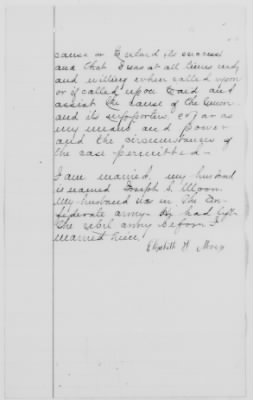 cause or retard its success
and that I was at all times ready
and willing when called upon
or if called upon to aid and
assist the cause of the Union
and its supporters, so far as
my means and power
and the circumstances of
the case permitted –
I am married, my husband
is named Joseph S. Moon
My husband was in the Con-
federate army. He had left
the rebel army before I
married him.
Elizabeth H. Moon